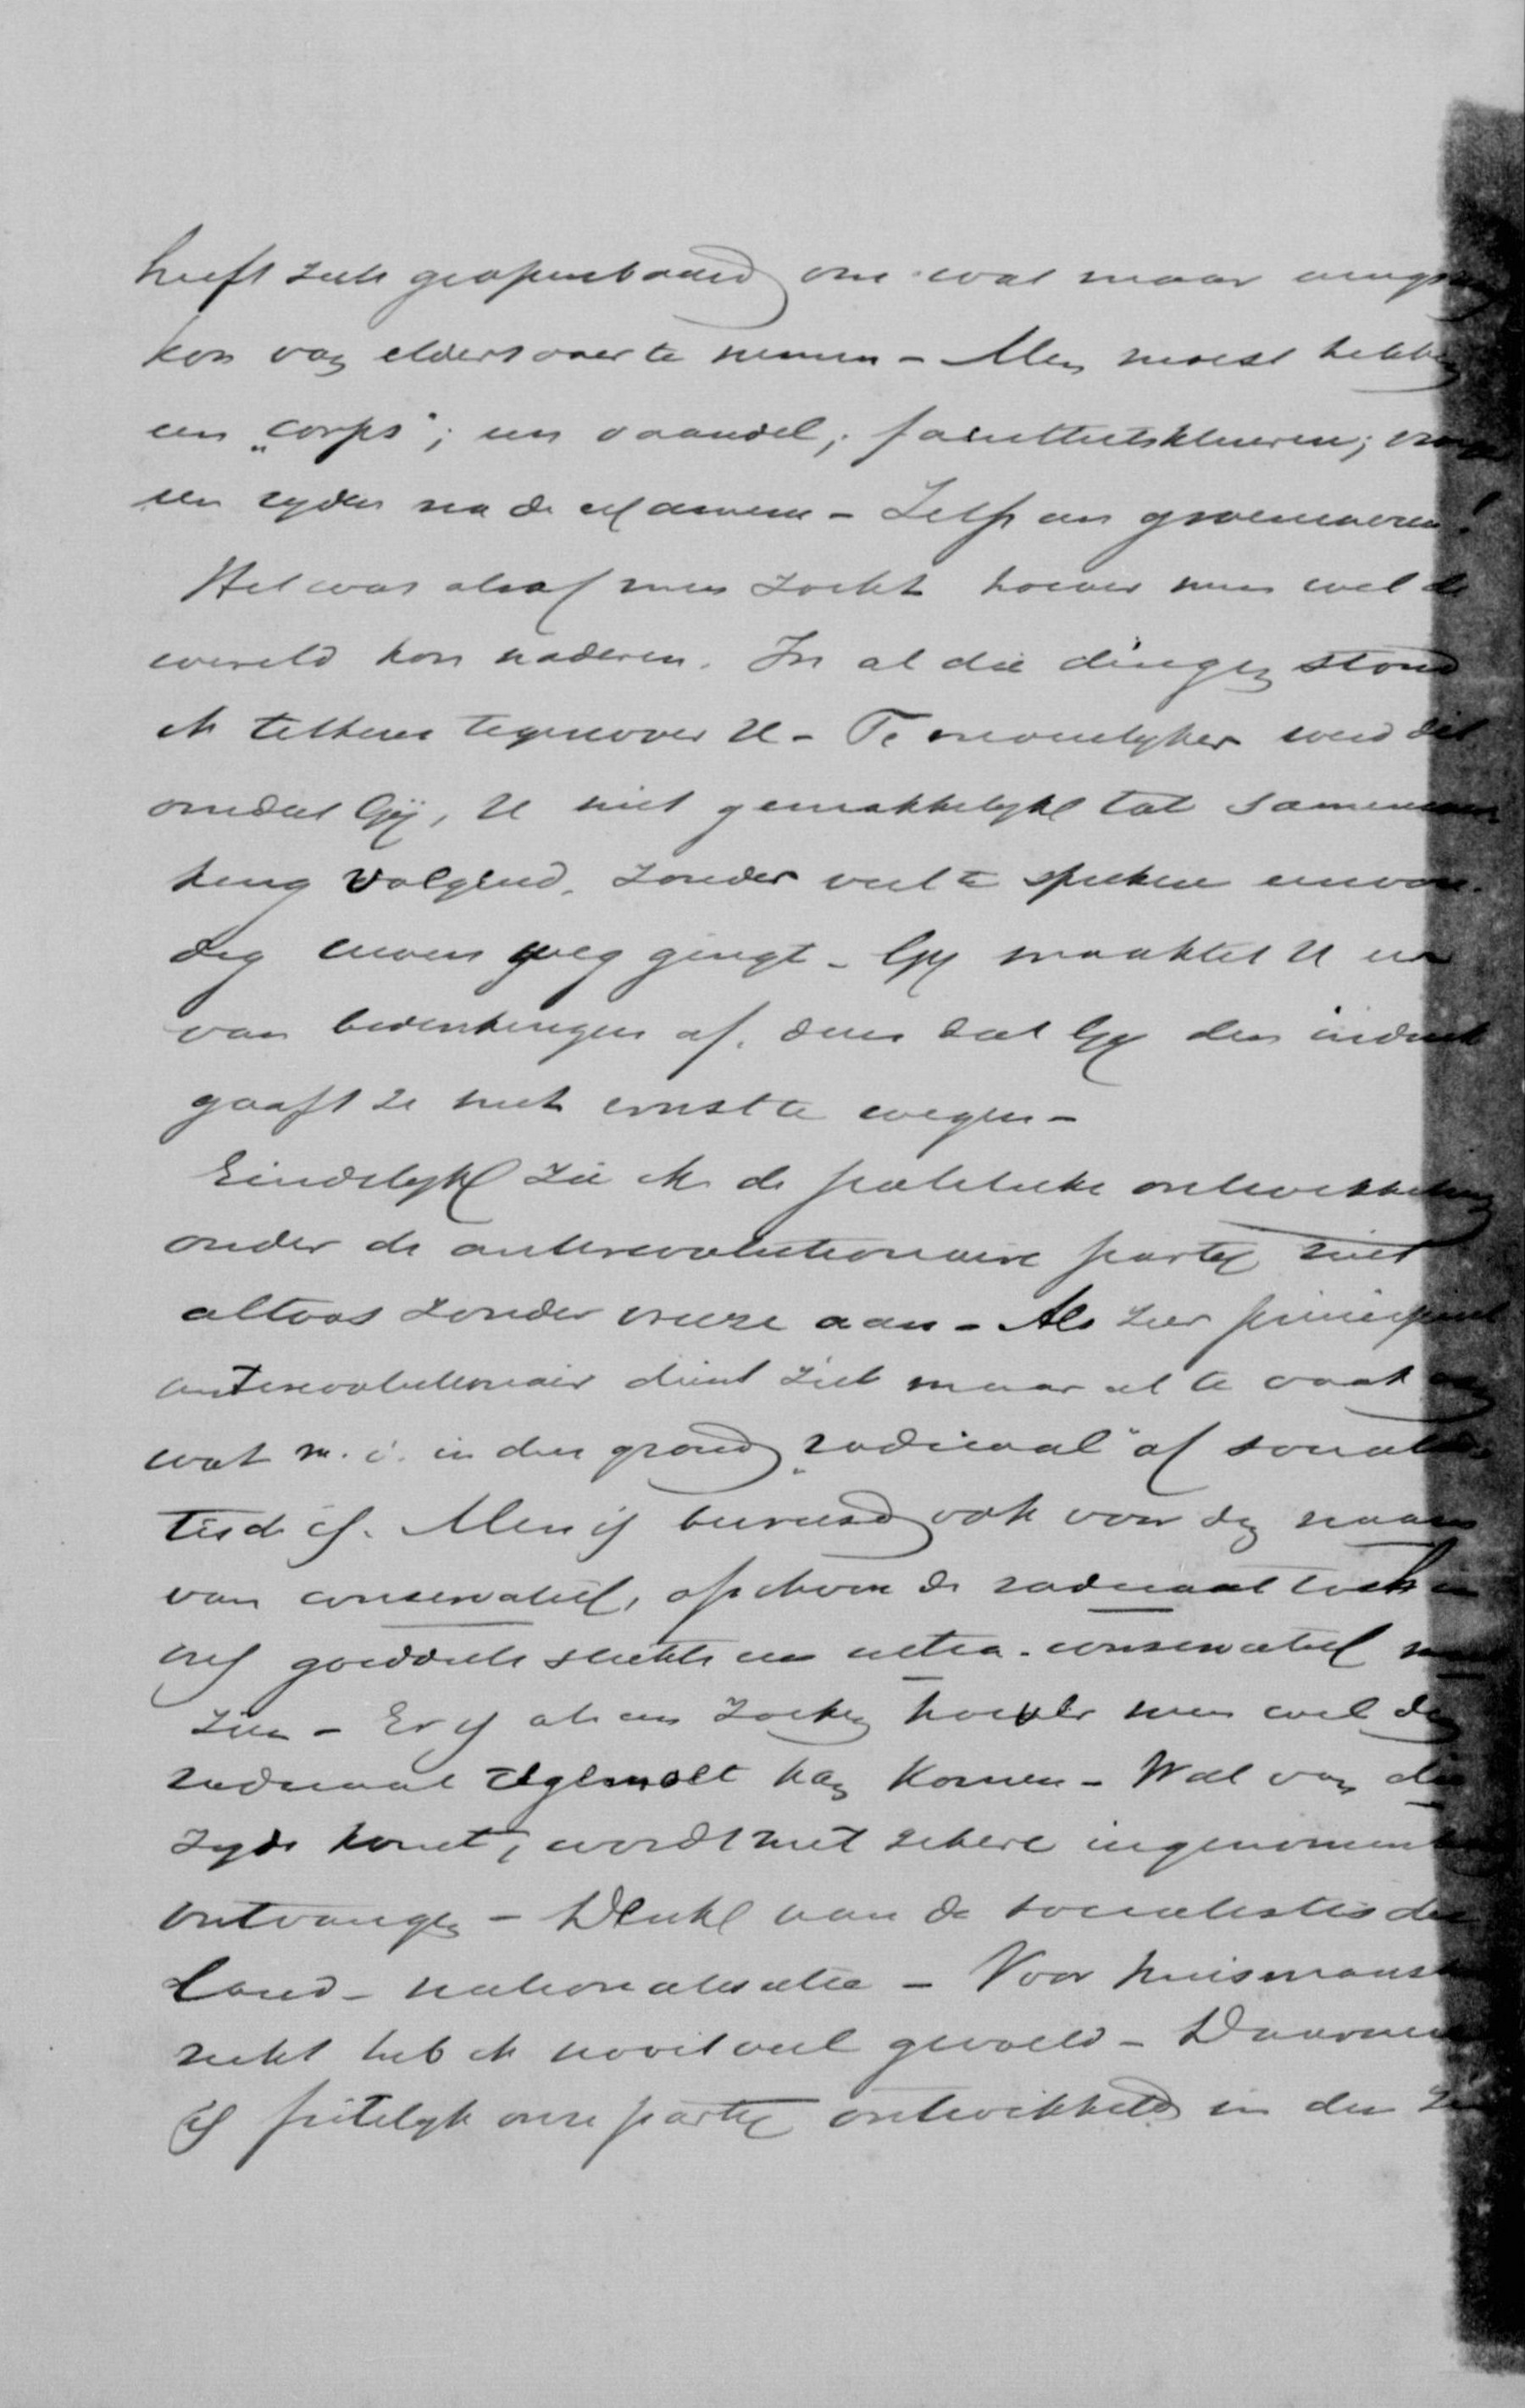 heeft zich geopenbaard om wat maar enigs
kon van elders over te nemen - Men moest hebben
een „corps"; een vaandel; faculteitskleuren;
een ryden na de examens - Zelfs een groenwezen!
Het was alsof men zocht hoever men wel de
wereld kon naderen. In al die dingen stond
ik telkens tegenover U - Te moeielyker werd dit
omdat Gij, U niet gemakkelyk tot samenwer
king voegend, zonder veel te spreken eenvou-
dig Uwen weg gingt - Gij maaktet U er
van bedenkingen af, dan dat Gij den indruk
gaaft ze met ernst te wegen -
Eindelyk zie ik de politieke ontwikkeling
onder de antirevolutionaire party niet
altoos zonder vreeze aan - Als zeer principieel
antirevolutionair dient zich maar al te vaak aan
wat m. i. in den grond „radicaal" of socialis
tisch is. Men is bevreesd ook voor den naam
van conservatief, ofschoon de radicaal toch
vrij goeddeels slechts een ultra-conservatief
zien - Er is als een zoeken hoever men wel den
radicaal tegemoet kan komen - Wat van die
zyde komt, wordt met zekere ingenomenheid
ontvangen - Denk aan de socialistische
Land-nationalisatie - Voor huismans
recht heb ik nooit veel gevoeld - Daarmee
is feitelyk onze party ontwikkeld in den